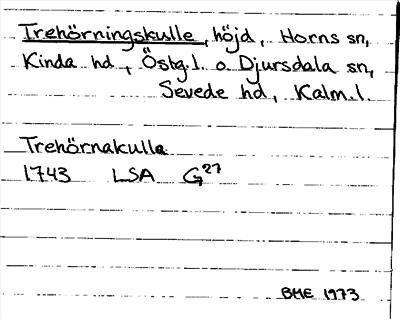 Trehörningskulle, höjd, Horns sn,
Kinda hd, Östg.l. o Djursdala sn,
Sevede hd, Kalm.l.
Trehörnakulla
1743 LSA G27
BHE 1973